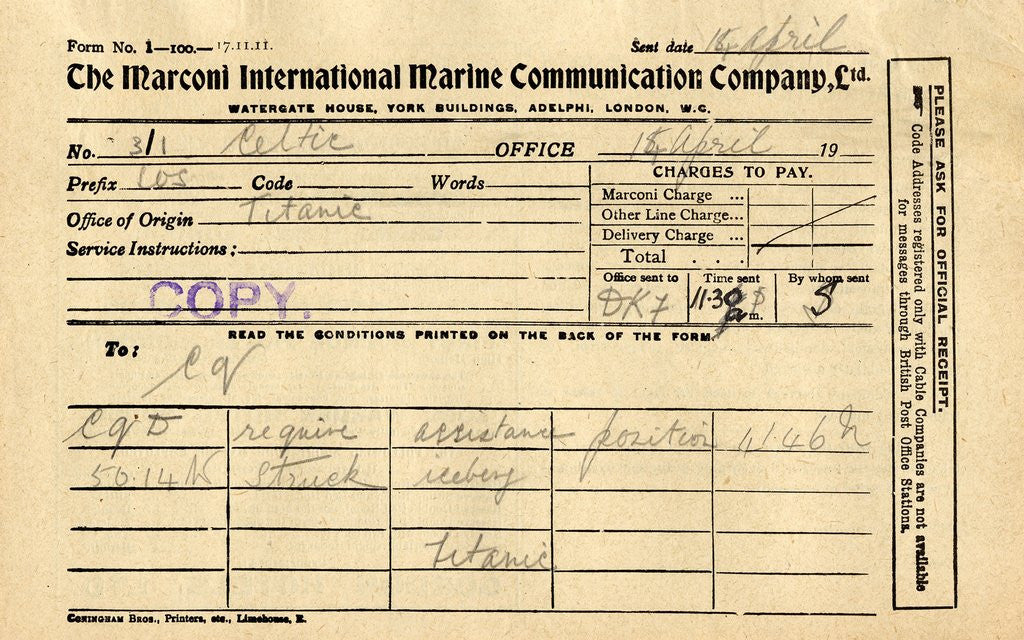 Form No. 1—100.—17.11.11.
Sent date April
The Marconi International Marine Communication Company, Ltd.
WATERGATE HOUSE, YORK BUILDINGS, ADELPHI, LONDON, W.C.
No. 3/1 Celtic OFFICE April 19
Prefix Code Words
CHARGES TO PAY.
Marconi Charge ...
Office of Origin Titanic
Other Line Charge...
Service Instructions:
Delivery Charge ...
Total . . .
Office sent to Time sent By whom sent
COPY.
DKF 11.30 a m. S
READ THE CONDITIONS PRINTED ON THE BACK OF THE FORM.
To:
Cq
CqD require assistance position 41.46 N
50.14 W Struck iceberg
Titanic
CONINGHAM BROS., Printers, etc., Limehouse, E.
PLEASE ASK FOR OFFICIAL RECEIPT.
Code Addresses registered only with Cable Companies are not available
for messages through British Post Office Stations.